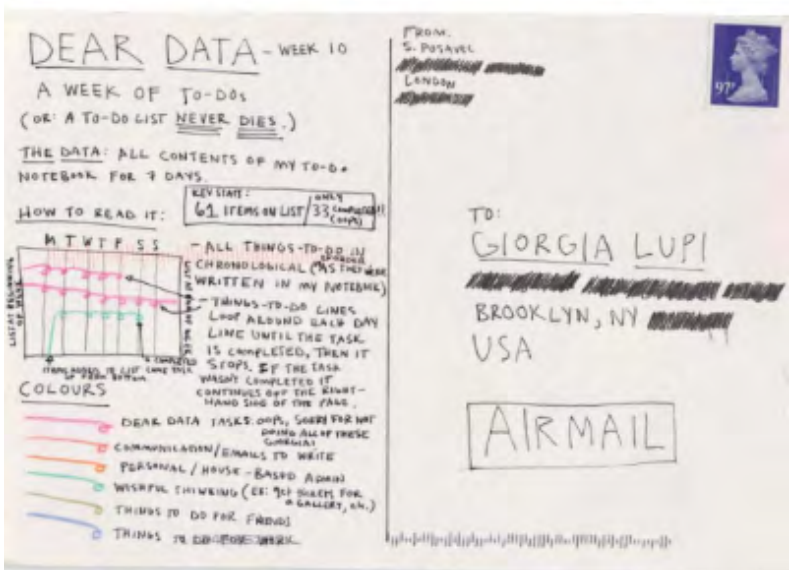 DEAR DATA - WEEK 10
A WEEK OF TO-DOs
(OR: A TO-DO LIST NEVER DIES.)
THE DATA: ALL CONTENTS OF MY TO-DO
NOTEBOOK FOR 7 DAYS.
KEY STATS:
61 ITEMS ON LIST / ONLY 33 COMPLETED!!
(OOPS)
HOW TO READ IT:
M T W T F S S
LIST AT BEGINNING
OF WEEK
LIST AT END OF WEEK
ITEMS ADDED TO LIST COME
UP FROM BOTTOM
COMPLETED
TASK
- ALL THINGS-TO-DO IN
CHRONOLOGICAL ORDER (AS THEY WERE
WRITTEN IN MY NOTEBOOK)
- THINGS-TO-DO LINES
LOOP AROUND EACH DAY
LINE UNTIL THE TASK
IS COMPLETED, THEN IT
STOPS. IF THE TASK
WASN'T COMPLETED IT
CONTINUES OFF THE RIGHT-
HAND SIDE OF THE PAGE.
COLOURS
DEAR DATA TASKS: OOPS, SORRY FOR NOT
DOING ALL OF THESE
GIORGIA!
COMMUNICATION/EMAILS TO WRITE
PERSONAL/HOUSE-BASED ADMIN
WISHFUL THINKING (EX: get sorted FOR
A GALLERY, etc.)
THINGS TO DO FOR FRIENDS
THINGS TO DO FOR WORK
FROM:
S. POSAVEC
LONDON
97P
TO:
GIORGIA LUPI
BROOKLYN, NY
USA
AIRMAIL